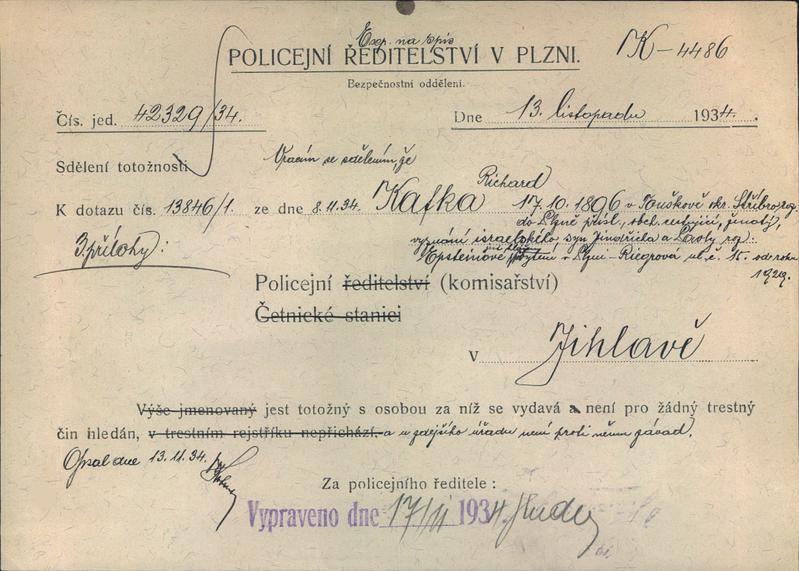 Exp. na spis
POLICEJNÍ ŘEDITELSTVÍ V PLZNI.
K-4486
Bezpečnostní oddělení.
Čís. jed. 42329/34.
Dne 13. listopadu 1934.
Sdělení totožnosti
Vracím se sdělením, že
K dotazu čís. 13846/1. ze dne 8.11.34. Kafka Richard 17.10.1896 v Touškově okr. Stříbro rg.
do Plzně přísl., obch. cestující, ženatý,
3 přílohy:
vyznání israelského syn Jindřicha a Berty rg.
Epsteinové v Plzni - Riegrova ul. č. 15. od roku
1929.
Policejní ředitelství (komisařství)
Četnické stanici
v Jihlavě
Výše jmenovaný jest totožný s osobou za níž se vydává a není pro žádný trestný
čin hledán, v trestním rejstříku nepřichází. a u zdejšího úřadu není proti němu závad.
Opsal dne 13.11.34.
Za policejního ředitele:
Vypraveno dne 17/11 1934